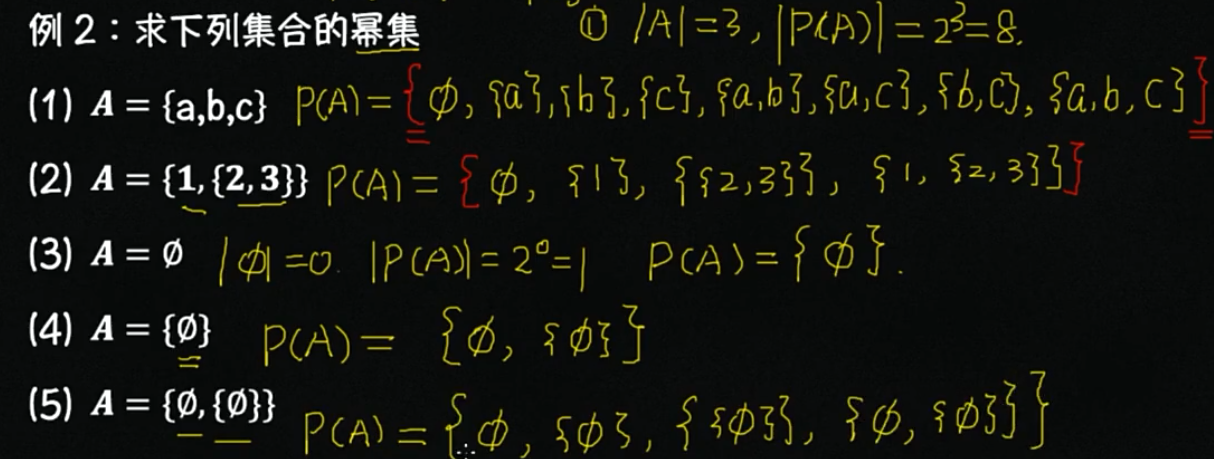 例 2：求下列集合的幂集 ① |A|=3, |P(A)|=2³=8.
(1) A = {a,b,c} P(A)={∅, {a},{b},{c},{a,b},{a,c},{b,c},{a,b,c}}
(2) A = {1,{2,3}} P(A)={∅, {1}, {{2,3}}, {1,{2,3}}}
(3) A = ∅ |∅|=0. |P(A)|=2⁰=1 P(A)={∅}.
(4) A = {∅} P(A)= {∅, {∅}}
(5) A = {∅,{∅}} P(A)={∅, {∅}, {{∅}}, {∅,{∅}}}